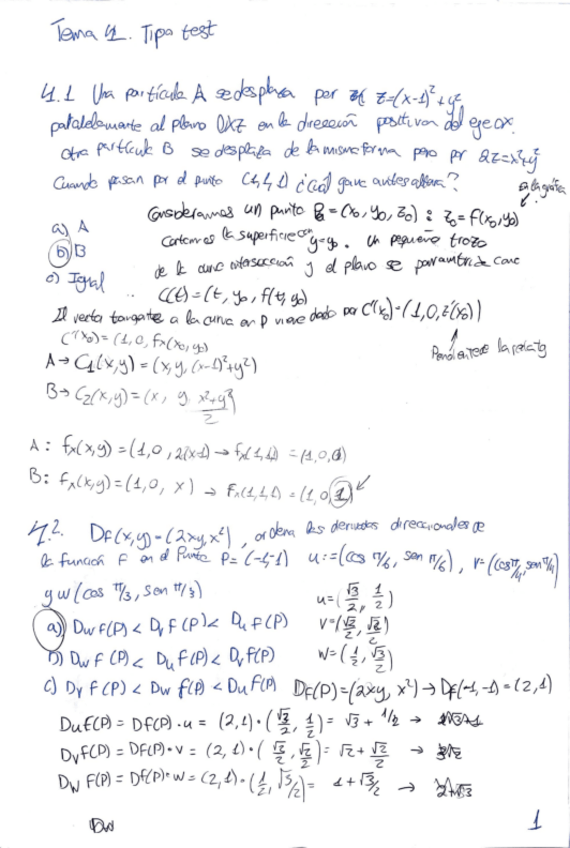 Tema 4. Tipo test
4.1 Una partícula A se desplaza por z=(x-1)²+y²
paralelamente al plano OXZ en la dirección positiva del eje OX.
Otra partícula B se desplaza de la misma forma pero por 2z=x²+y²
Cuando pasan por el punto (1,1,1) ¿cuál gana altura?
en la gráfica
a) A
b) B
c) Igual
Consideramos un punto P=(x₀, y₀, z₀) : z₀=f(x₀,y₀)
Cortamos la superficie con y=y₀. Un pequeño trozo
de la curva intersección y el plano se parametriza como
C(t)=(t, y₀, f(t,y₀)
El vector tangente a la curva en P viene dado por C'(x₀)=(1,0,z'(x₀))
C'(x₀)=(1,0,fx(x₀,y₀)
Pendiente de la recta tg
A→C₁(x,y)=(x,y,(x-1)²+y²)
B→C₂(x,y)=(x, y, x²+y²/2)
A: fx(x,y)=(1,0,2(x-1)→fx(1,1,1)=(1,0,0)
B: fx(x,y)=(1,0,x)→Fx(1,1,1)=(1,0,1)
4.2. Df(x,y)=(2xy,x²), ordena las derivadas direccionales de
la función F en el Punto P=(-1,-1) u:=(cos π/6, sen π/6), v=(cos π/4, sen π/4)
y w(cos π/3, sen π/3)
a) Dw f(P)< Dv f(P)< Du f(P)
b) Dw f(P)< Du f(P)< Dv f(P)
c) Dv f(P)< Dw f(P)< Du f(P)
u=(√3/2, 1/2)
v=(√2/2, √2/2)
w=(1/2, √3/2)
Df(P)=(2xy, x²)→Df(-1,-1)=(2,1)
Du f(P)= Df(P)·u = (2,1)·(√3/2, 1/2)= √3+1/2 →
Dv f(P)= Df(P)·v = (2,1)·(√2/2, √2/2)= √2+√2/2 →
Dw f(P)= Df(P)·w = (2,1)·(1/2, √3/2)= 1+√3/2 →
Dw
1